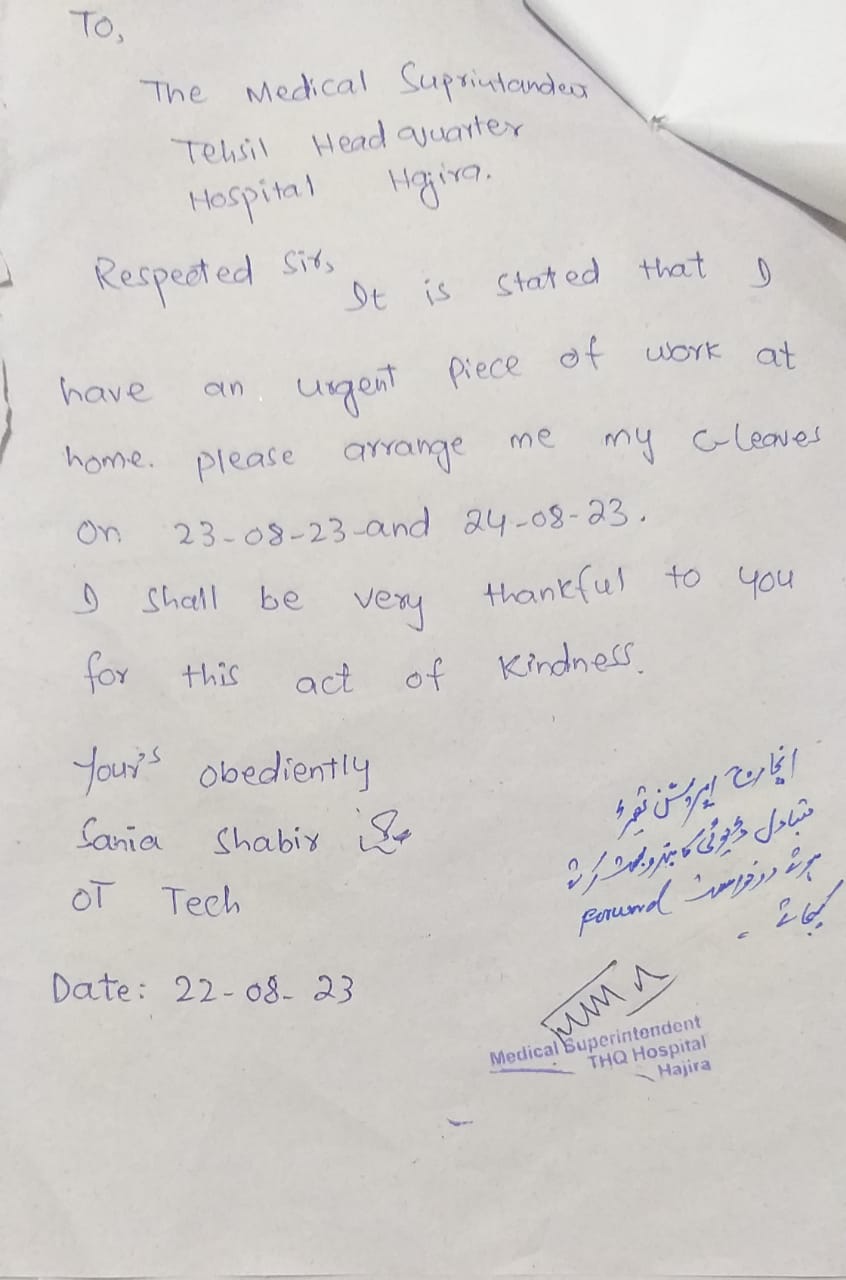 To,
The Medical Suprintander
Tehsil Head Quarter
Hospital Hajira.
Respected Sir,
It is stated that I
have an urgent piece of work at
home. please arrange me my C-leaves
on 23-08-23-and 24-08-23.
I shall be very thankful to you
for this act of kindness.
Your's obediently
Sania Shabir
OT Tech
Date: 22-08-23
انچارج اپریشن تھیٹر
متبادل ڈیوٹی کا بندوبست کرتے
ہوئے درخواست Forward
کیجائے -
Medical Superintendent
THQ Hospital
Hajira